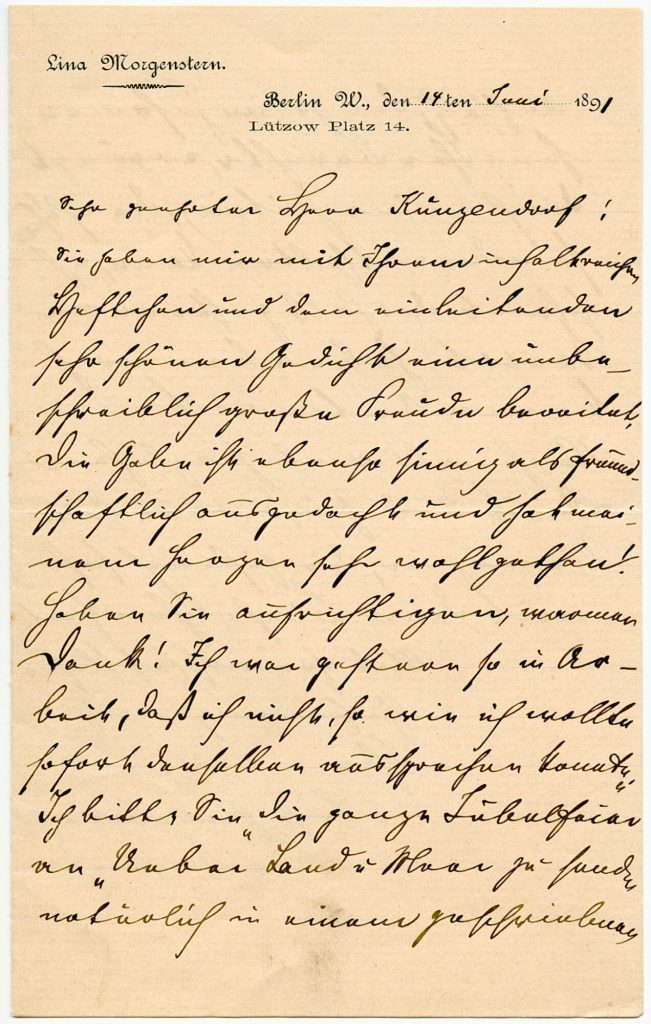 Lina Morgenstern.
Berlin W., den 14ten Juni 1891
Lützow Platz 14.
Sehr geehrter Herr Kunzendorf!
Sie haben mir mit Ihrem inhaltreichen
Heftchen und dem einleitenden
sehr schönen Gedicht eine unbe-
schreiblich große Freude bereitet,
Die Gabe ist ebenso sinnig als freund-
schaftlich ausgedacht und hat mei-
nem Herzen sehr wohlgethan!
Haben Sie aufrichtigen, warmen
Dank! Ich war gestern so in Ar-
beit, daß ich nicht, so wie ich wollte
sofort denselben aussprechen konnte,
Ich bitte Sie "die ganze Jubelfeier"
an "Ueber Land u Meer zu senden
natürlich in einem geschriebenen